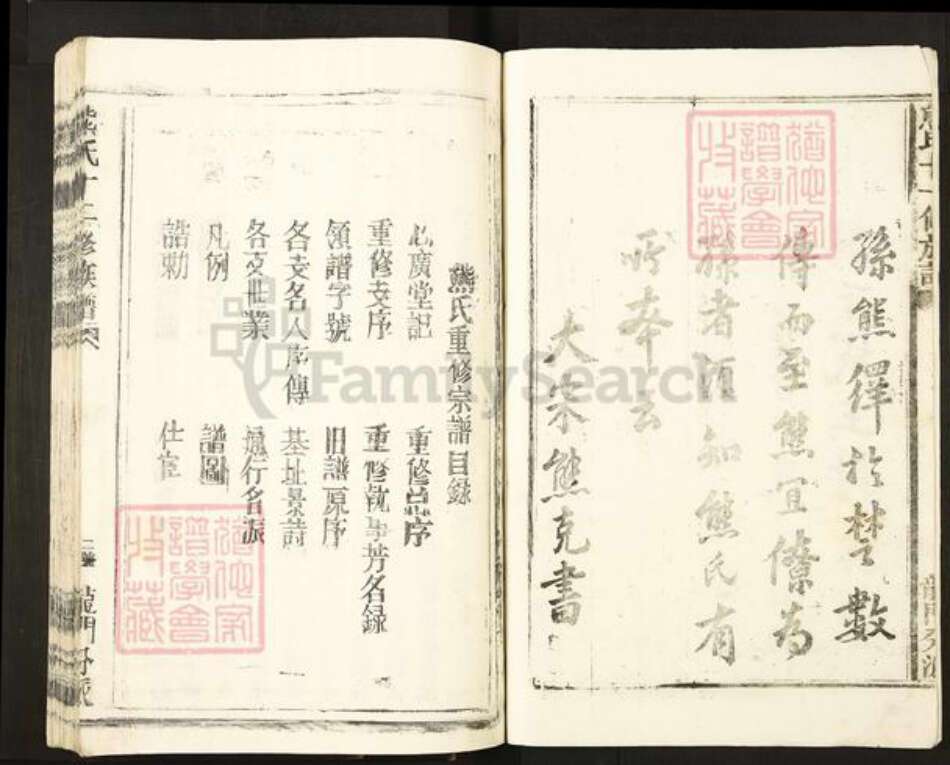 孫熊繹於楚數
傳而至熊宜僚為
孫者須知熊氏有
所本云
大宋熊克書
熊氏十一修族譜
龍門分派
熊氏重修宗譜目錄
廣堂記 重修总序
重修支序 重修執事芳名錄
領譜字號 旧譜原序
各支名人序傳 基址景詩
各支世業 遺行名派
凡例 譜圖
誥勅 仕宦
熊氏十二修族譜
龍門分派
猶他家譜學會收藏
猶他家譜學會收藏
FamilySearch